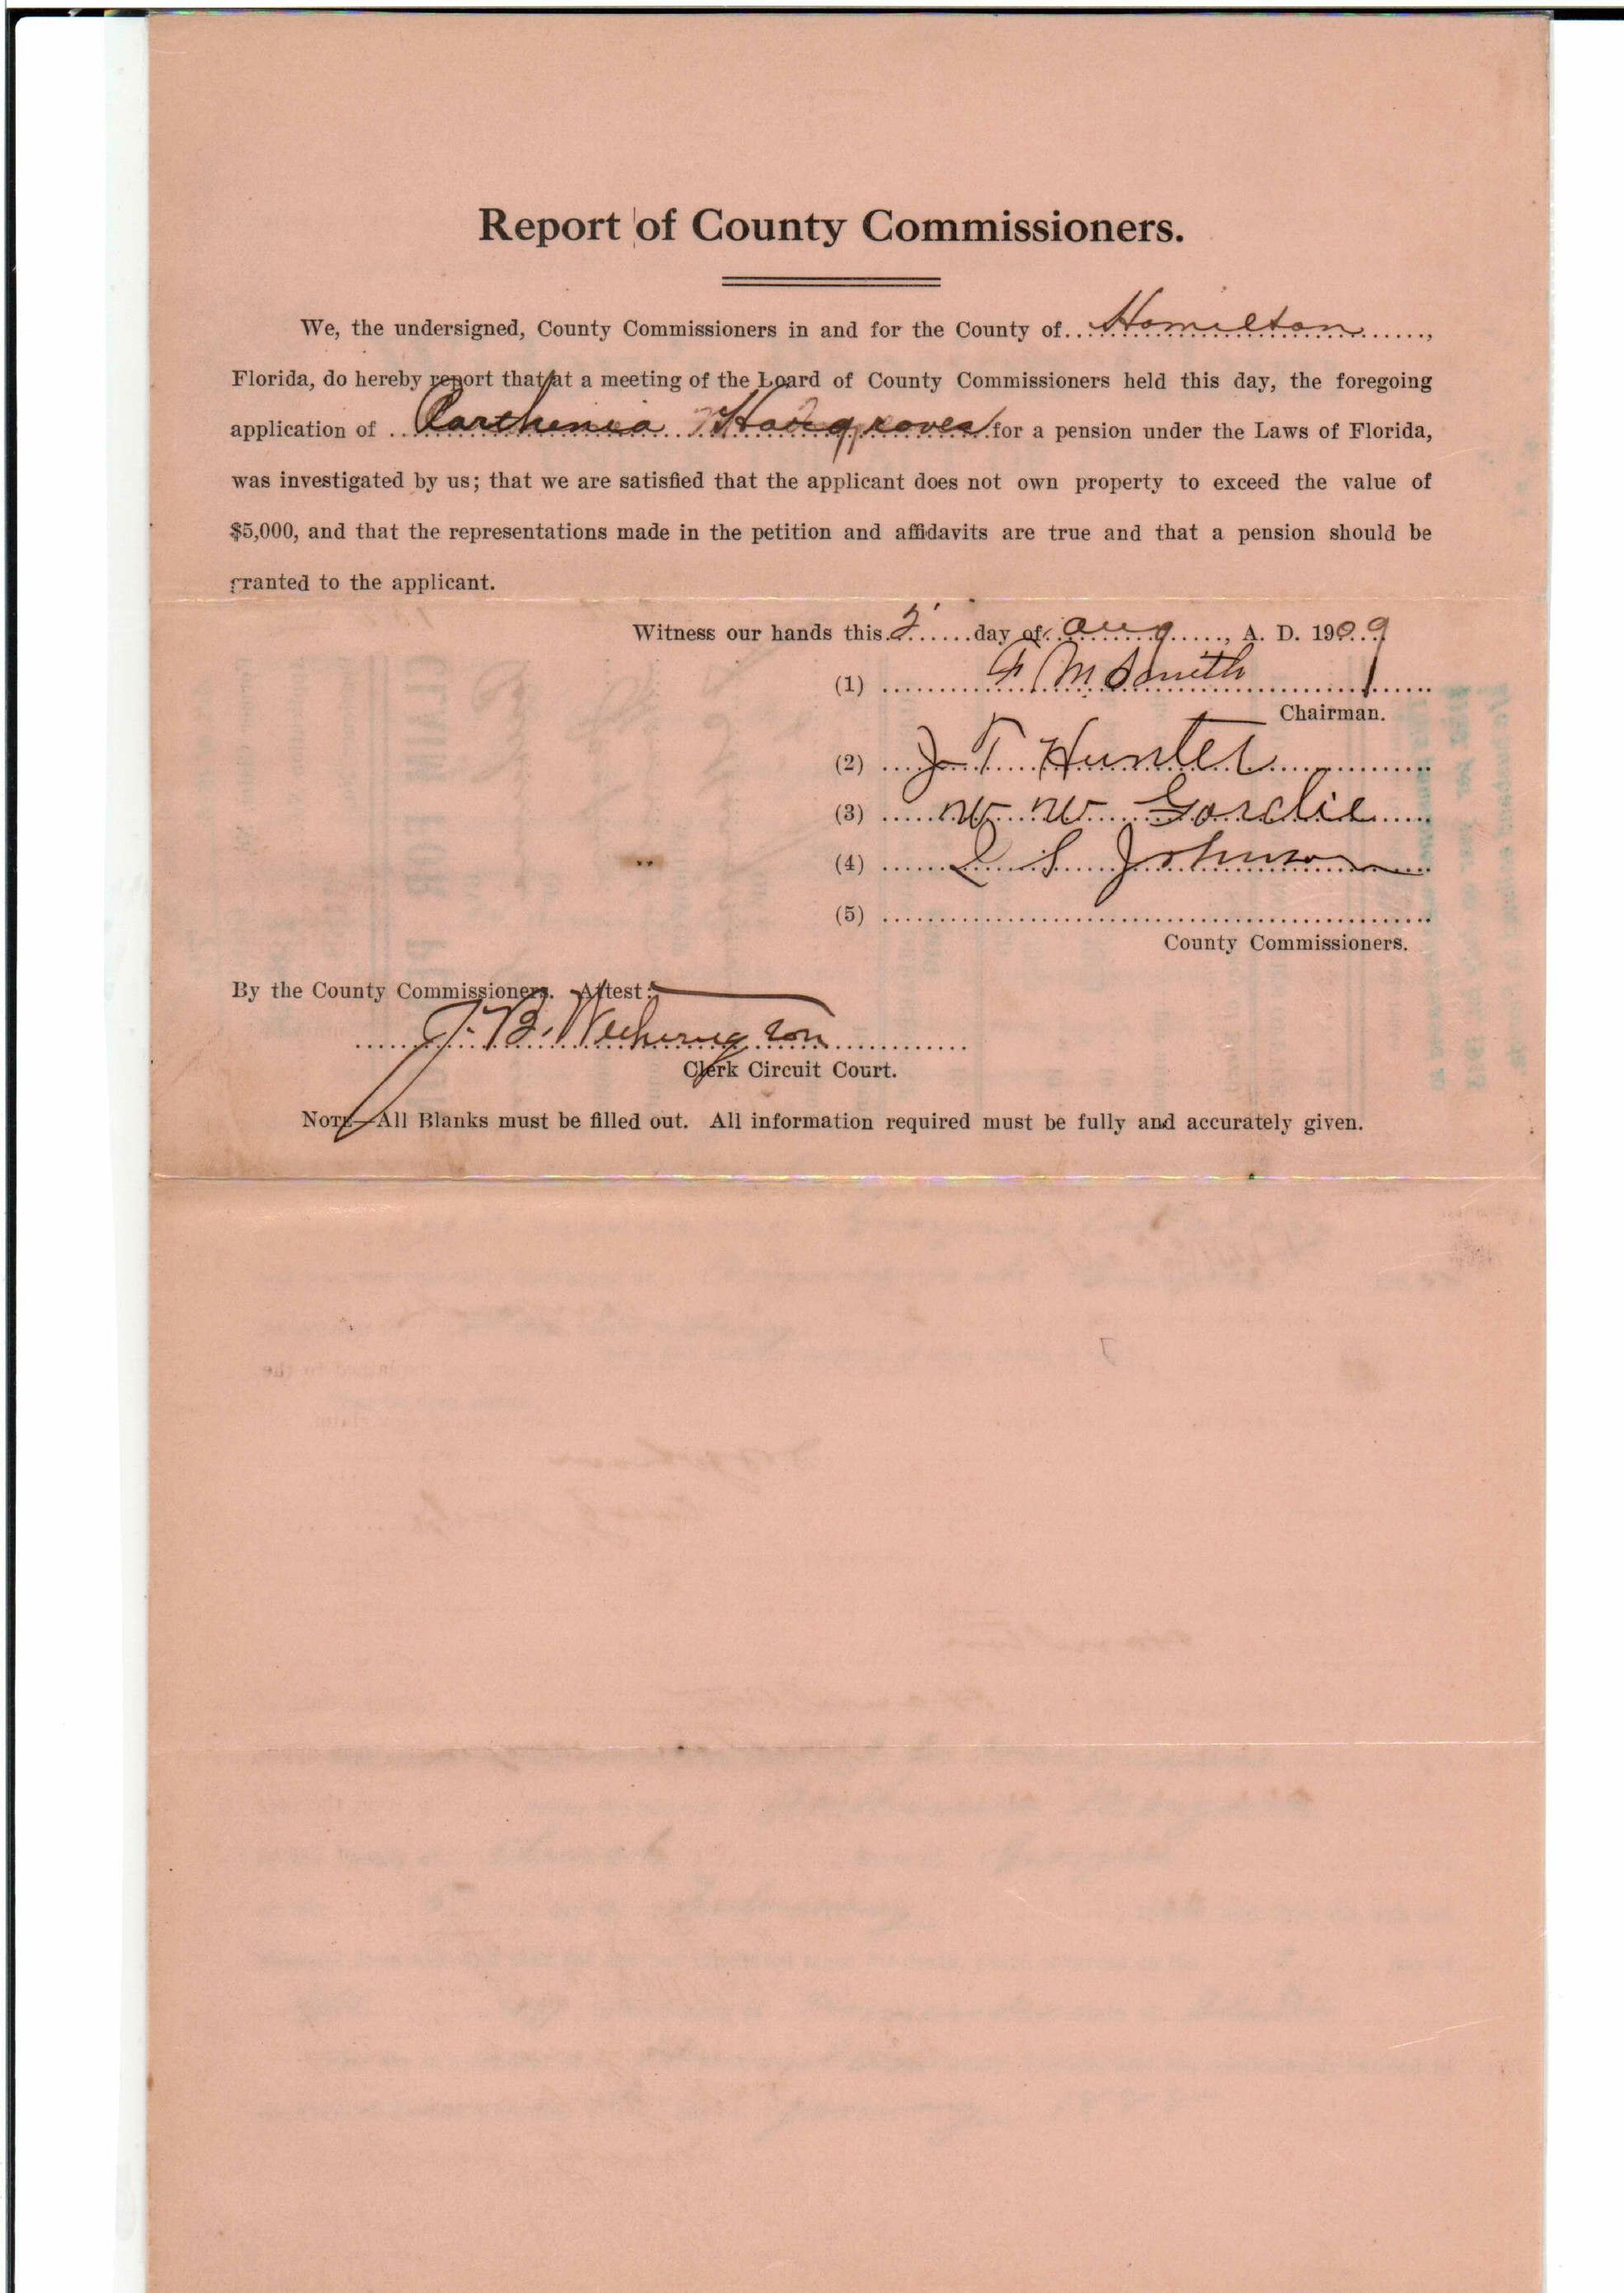 Report of County Commissioners.
We, the undersigned, County Commissioners in and for the County of Hamilton,
Florida, do hereby report that at a meeting of the Board of County Commissioners held this day, the foregoing
application of Parthenia Hargroves for a pension under the Laws of Florida,
was investigated by us; that we are satisfied that the applicant does not own property to exceed the value of
$5,000, and that the representations made in the petition and affidavits are true and that a pension should be
granted to the applicant.
Witness our hands this 2 day of Aug, A. D. 1909
(1) F M Smith
Chairman.
(2) J T Hunter
(3) W W
(4) S Johnson
(5)
County Commissioners.
By the County Commissioners. Attest:
J. B. Witherington
Clerk Circuit Court.
NOTE—All Blanks must be filled out. All information required must be fully and accurately given.